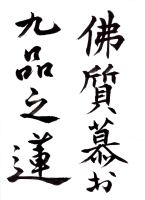 佛質慕お
九品之蓮